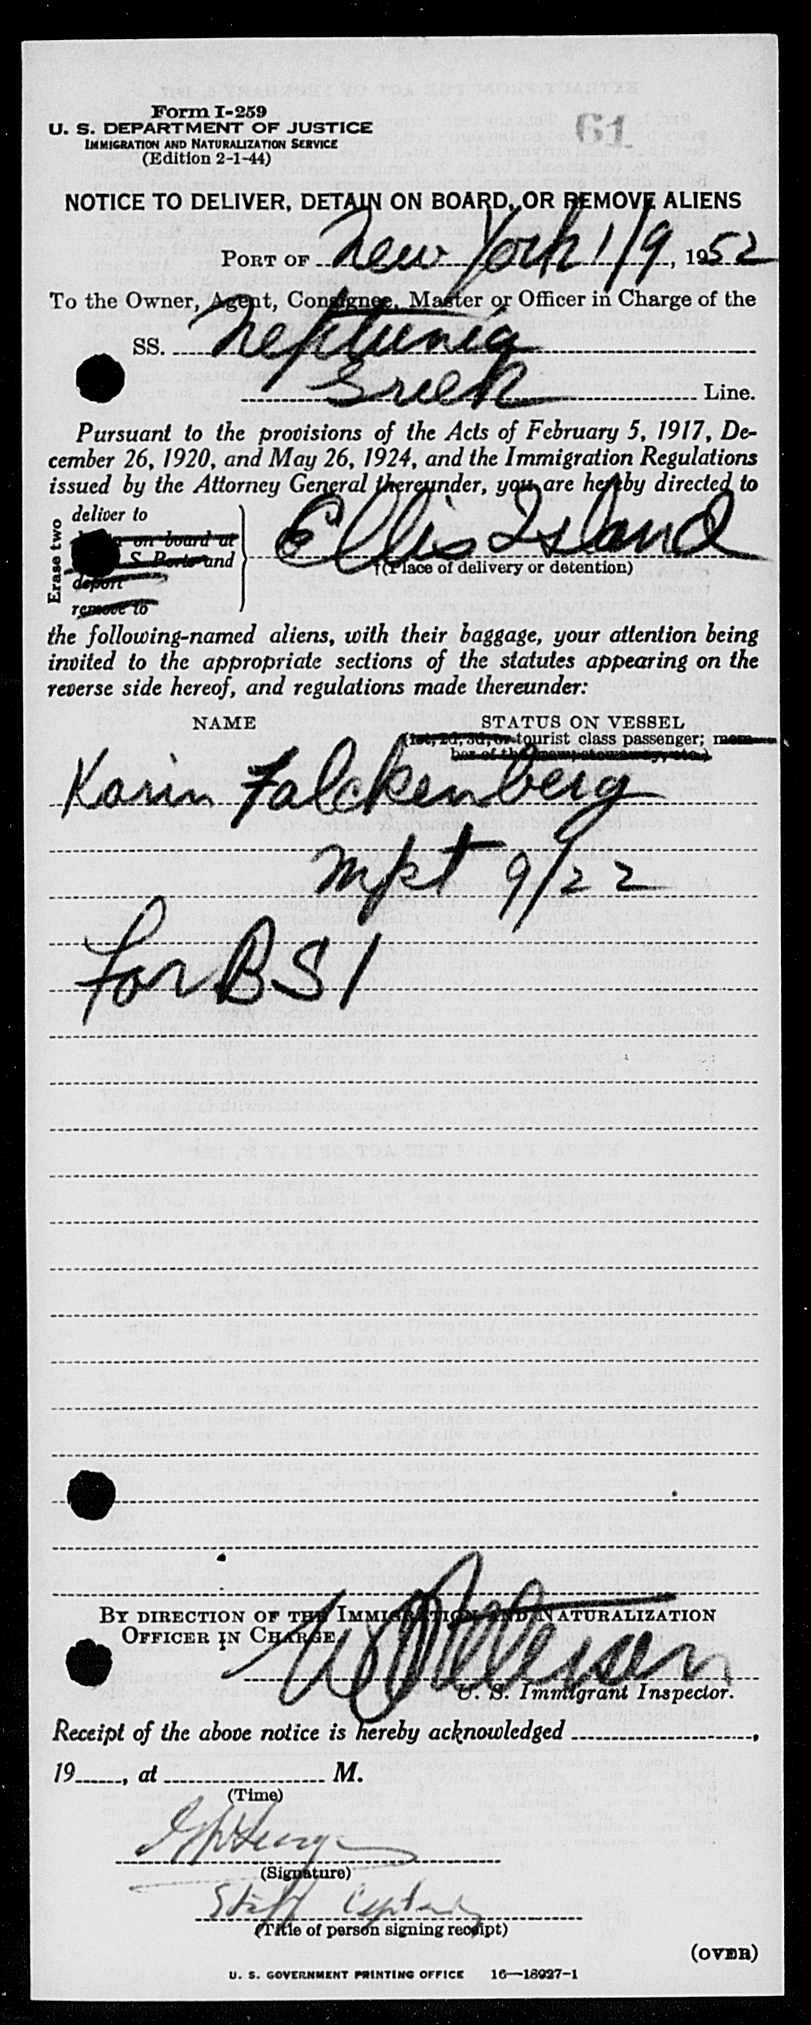 Form I-259
U. S. DEPARTMENT OF JUSTICE
IMMIGRATION AND NATURALIZATION SERVICE
(Edition 2-1-44)
61
NOTICE TO DELIVER, DETAIN ON BOARD, OR REMOVE ALIENS
PORT OF New York 1/9, 1952
To the Owner, Agent, Consignee, Master or Officer in Charge of the
SS. Neptunia
Greek Line.
Pursuant to the provisions of the Acts of February 5, 1917, De-
cember 26, 1920, and May 26, 1924, and the Immigration Regulations
issued by the Attorney General thereunder, you are hereby directed to
Erase two
deliver to
on board at
U. S. Ports and
deport
remove to
Ellis Island
(Place of delivery or detention)
the following-named aliens, with their baggage, your attention being
invited to the appropriate sections of the statutes appearing on the
reverse side hereof, and regulations made thereunder:
NAME STATUS ON VESSEL
(1st, 2d, 3d, or tourist class passenger; mem-
ber of the crew, stowaway, etc.)
Karin Falckenberg
Mpt 9/22
for BSI
BY DIRECTION OF THE IMMIGRATION AND NATURALIZATION
OFFICER IN CHARGE
Petersen
U. S. Immigrant Inspector.
Receipt of the above notice is hereby acknowledged ,
19 , at M.
(Time)
(Signature)
Staff Captain
(Title of person signing receipt)
(OVER)
U. S. GOVERNMENT PRINTING OFFICE 16—18927-1